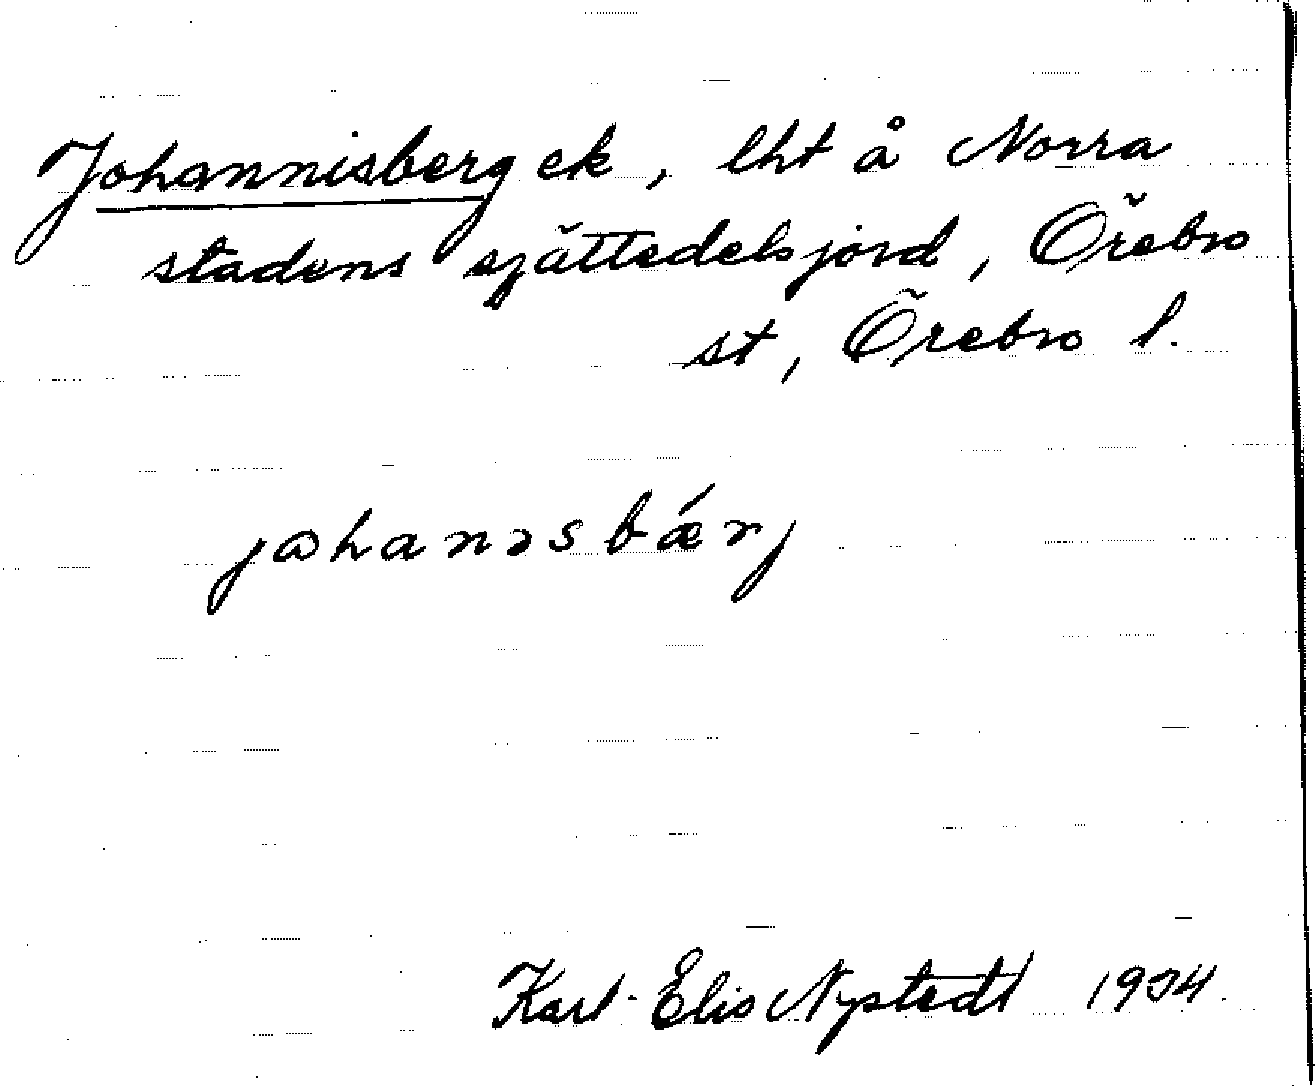 Johannisberg ek, lht å Norra
stadens sjättedelsjord, Örebro
st, Örebro l.
johanəsbǽrj
Karl-Elis Nystedt 1934.